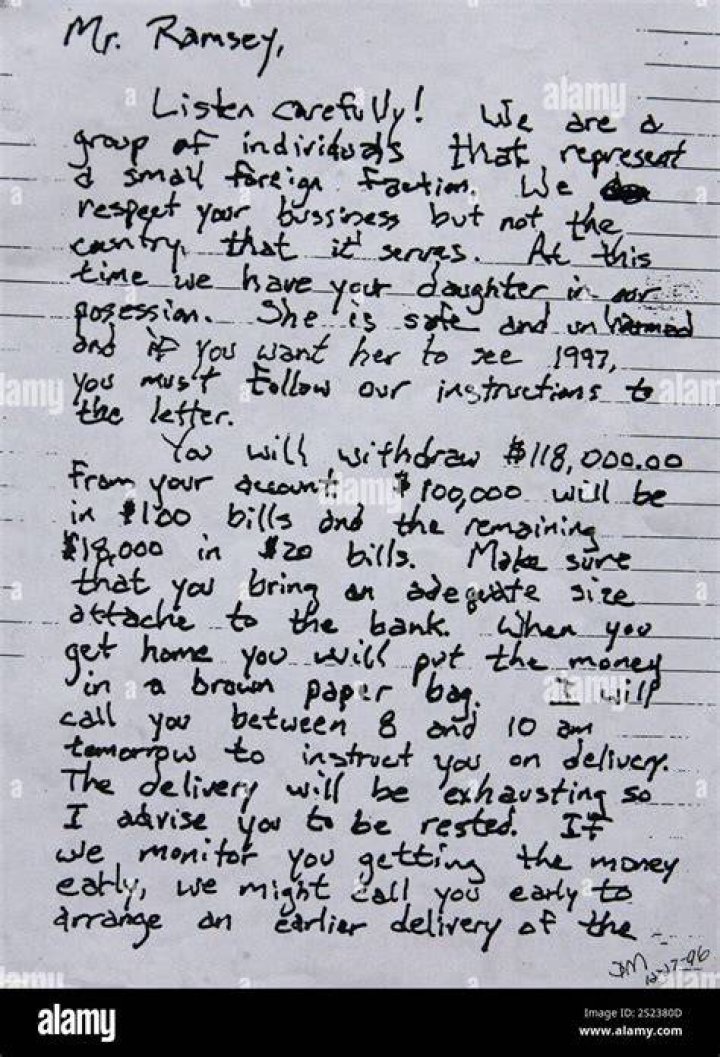 Mr. Ramsey,
Listen carefully! We are a
group of individuals that represent
a small foreign faction. We
respect your bussiness but not the
country that it serves. At this
time we have your daughter in our
posession. She is safe and unharmed
and if you want her to see 1997,
you must follow our instructions to
the letter.
You will withdraw $118,000.00
from your account. $100,000 will be
in $100 bills and the remaining
$18,000 in $20 bills. Make sure
that you bring an adequate size
attache to the bank. When you
get home you will put the money
in a brown paper bag. I will
call you between 8 and 10 am
tomorrow to instruct you on delivery.
The delivery will be exhausting so
I advise you to be rested. If
we monitor you getting the money
early, we might call you early to
arrange an earlier delivery of the
12-27-96
alamy
Image ID: 2S2380D
www.alamy.com